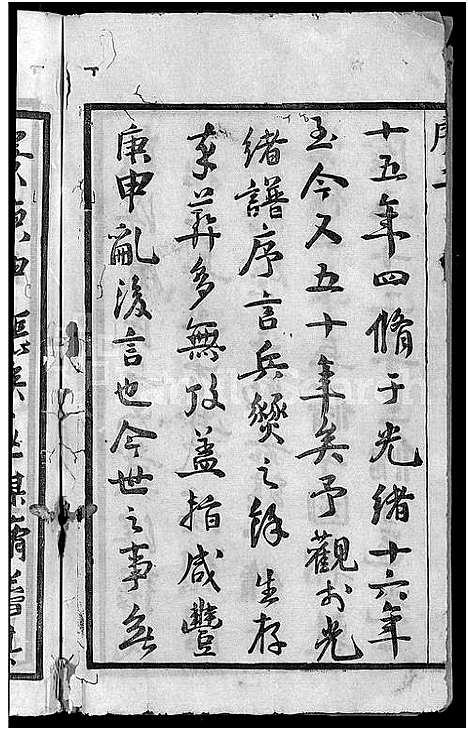 十五年四脩于光緒十六年
至今又五十年矣予觀於光
緒譜序言兵燹之餘生存
卒葬多無攷蓋指咸豐
庚申亂後言也今世之事無